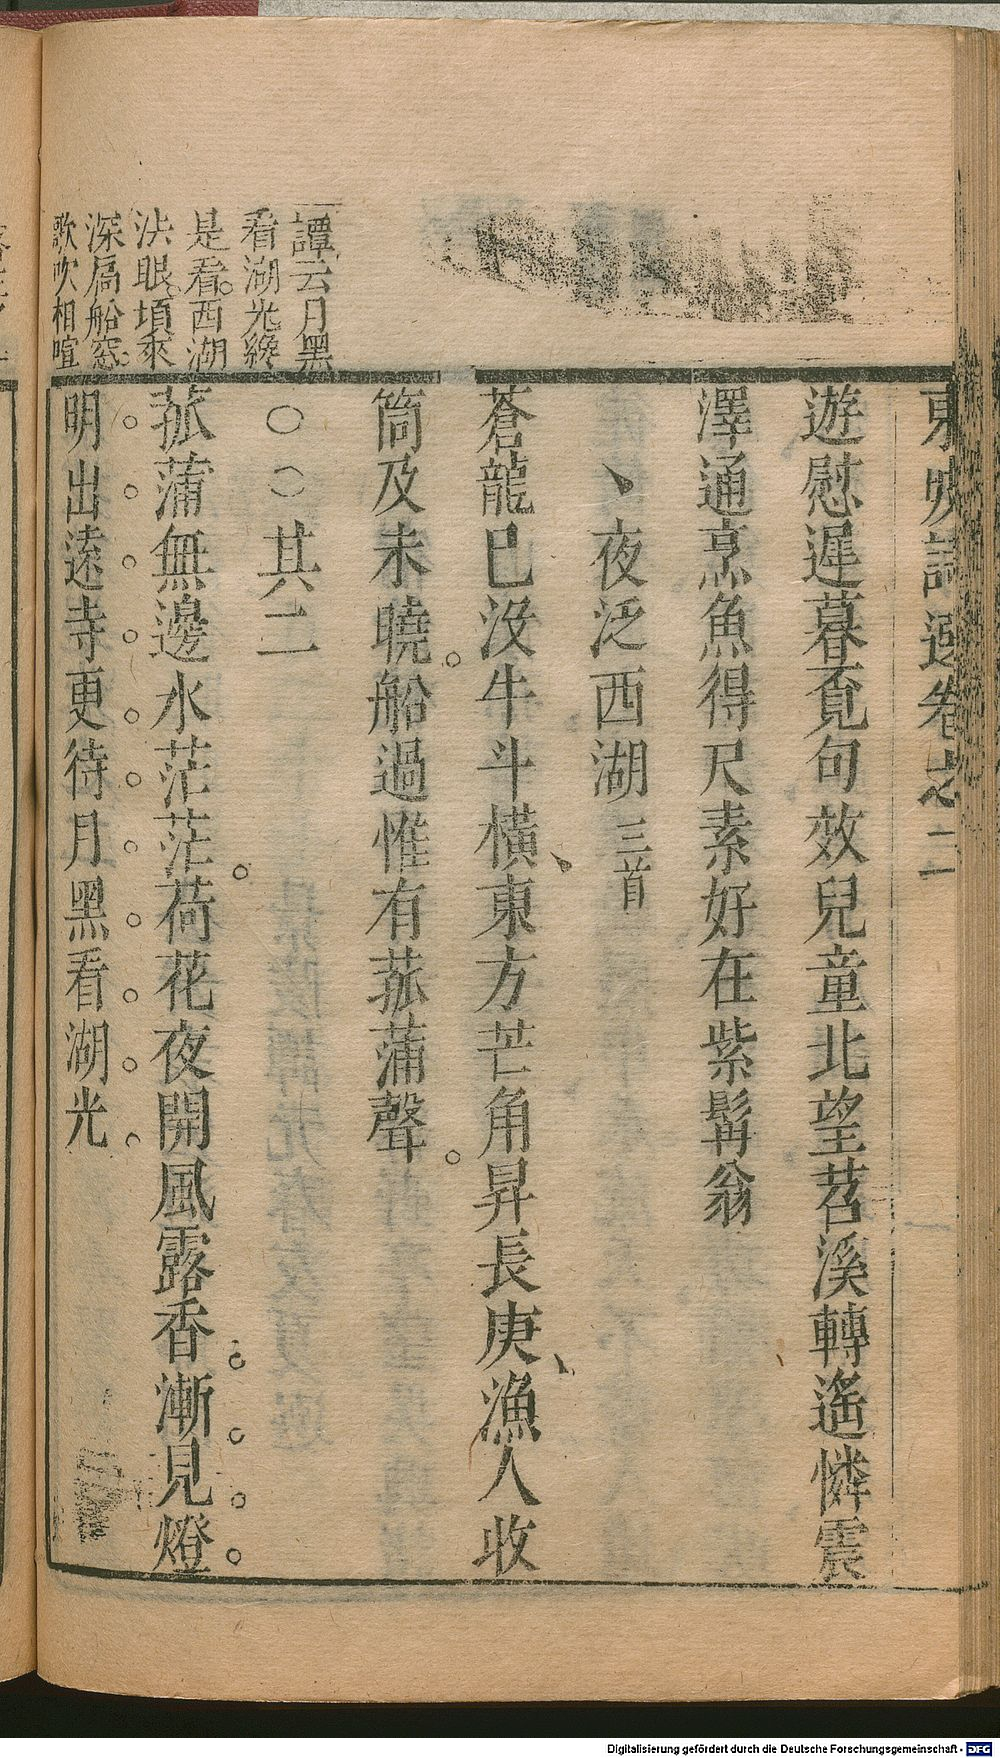 東坡詩選卷之二
遊慰遲暮覔句效兒童北望苕溪轉遙憐震
澤通烹魚得尺素好在紫髯翁
、夜泛西湖三首
蒼龍已没牛斗橫、東方芒角昇長庚、漁人收
筒及未曉。船過惟有菰蒲聲。
○○其二
菰蒲無邊水茫茫。荷花夜開風露香漸見燈
明出遠寺更待月黑看湖光
譚云月黑
看湖光纔
是看。西湖
法眼。頃乘
深扃船窓。
歌吹相喧
Digitalisierung gefördert durch die Deutsche Forschungsgemeinschaft - DFG